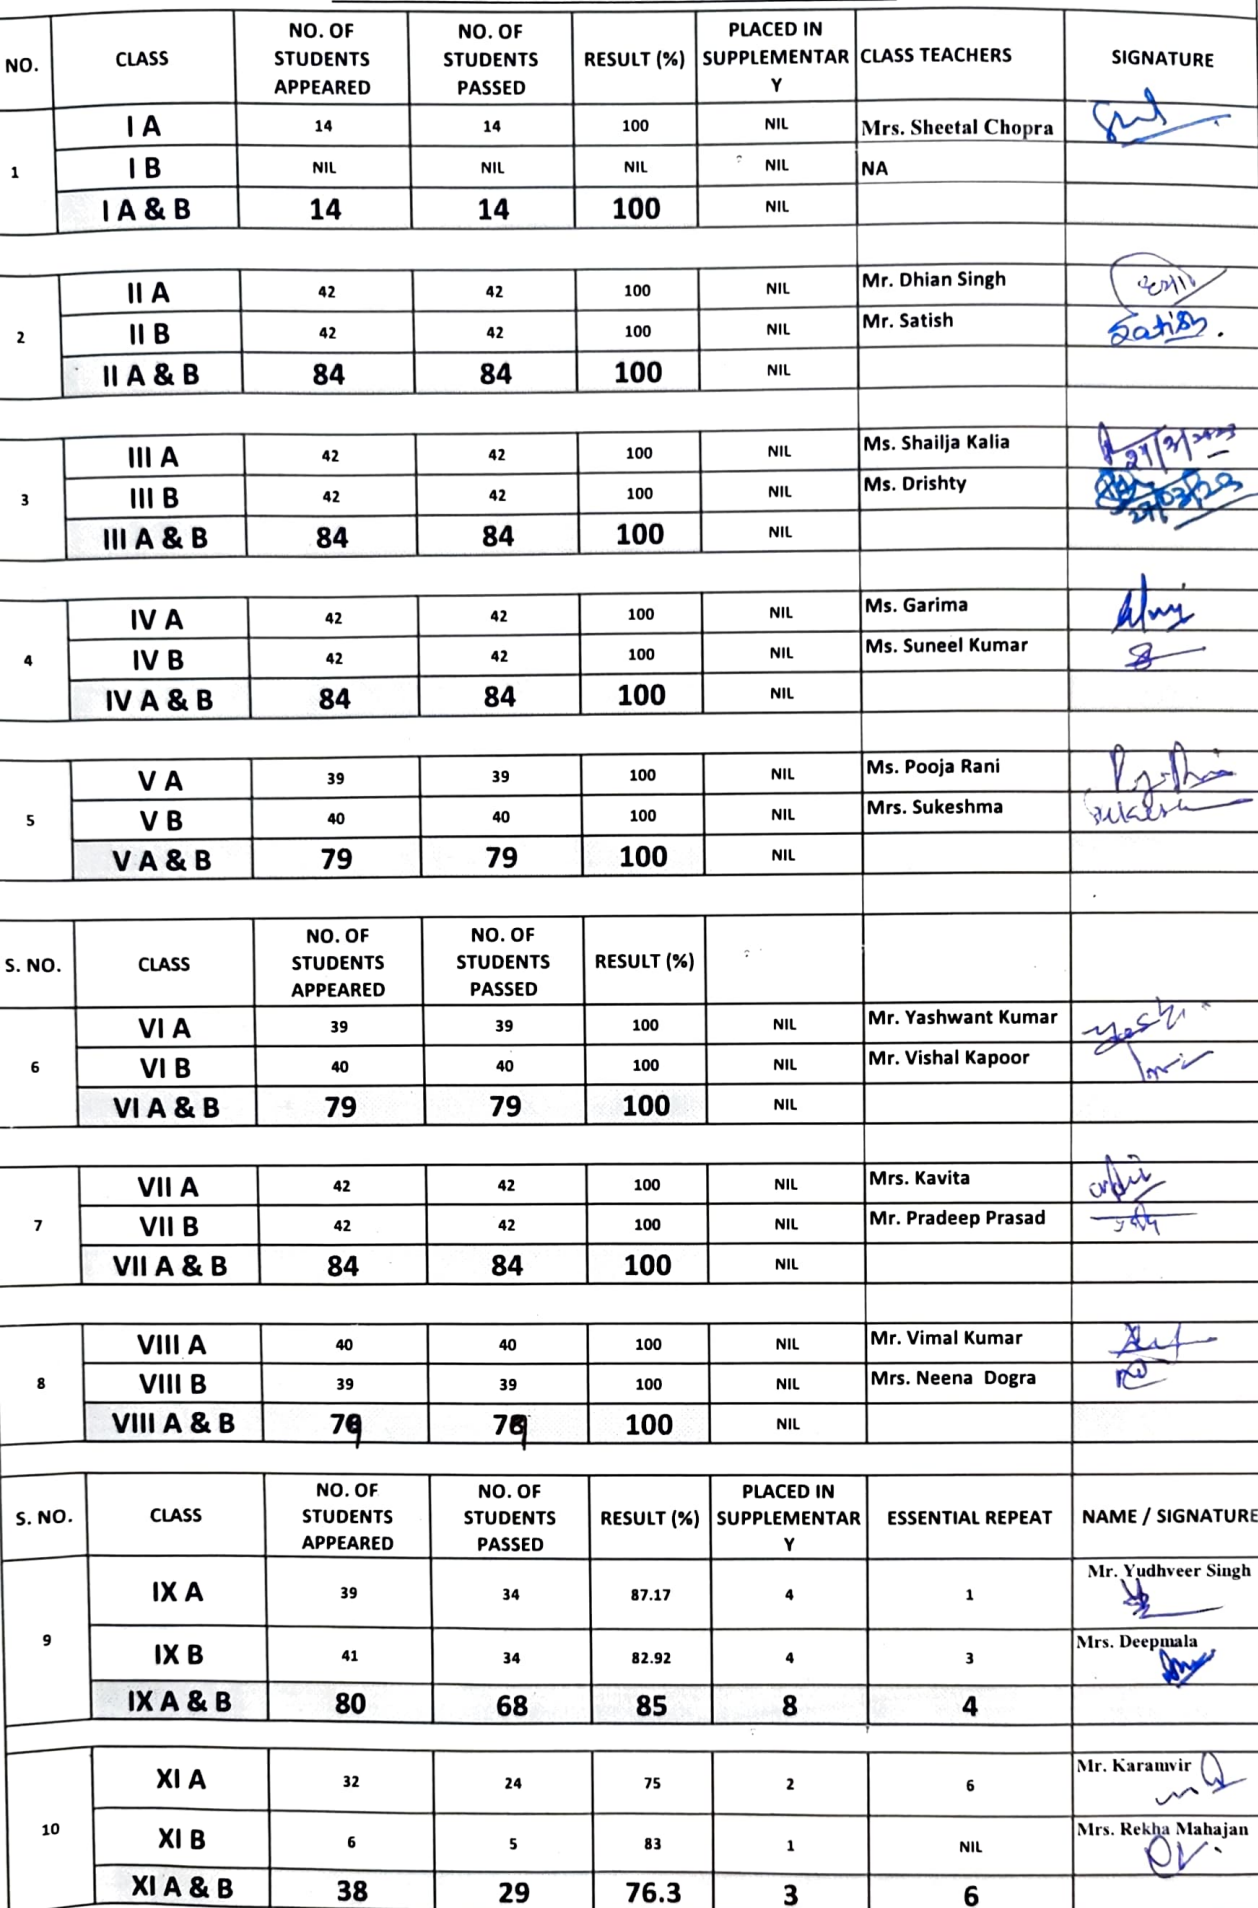 NO. CLASS NO. OF STUDENTS APPEARED NO. OF STUDENTS PASSED RESULT (%) PLACED IN SUPPLEMENTAR Y CLASS TEACHERS SIGNATURE
1
I A 14 14 100 NIL Mrs. Sheetal Chopra
I B NIL NIL NIL NIL NA
I A & B 14 14 100 NIL
2
II A 42 42 100 NIL Mr. Dhian Singh
II B 42 42 100 NIL Mr. Satish Satish.
II A & B 84 84 100 NIL
3
III A 42 42 100 NIL Ms. Shailja Kalia 27/3/2023
III B 42 42 100 NIL Ms. Drishty 27/03/23
III A & B 84 84 100 NIL
4
IV A 42 42 100 NIL Ms. Garima
IV B 42 42 100 NIL Ms. Suneel Kumar
IV A & B 84 84 100 NIL
5
V A 39 39 100 NIL Ms. Pooja Rani
V B 40 40 100 NIL Mrs. Sukeshma
V A & B 79 79 100 NIL
S. NO. CLASS NO. OF STUDENTS APPEARED NO. OF STUDENTS PASSED RESULT (%)
6
VI A 39 39 100 NIL Mr. Yashwant Kumar
VI B 40 40 100 NIL Mr. Vishal Kapoor
VI A & B 79 79 100 NIL
7
VII A 42 42 100 NIL Mrs. Kavita
VII B 42 42 100 NIL Mr. Pradeep Prasad
VII A & B 84 84 100 NIL
8
VIII A 40 40 100 NIL Mr. Vimal Kumar
VIII B 39 39 100 NIL Mrs. Neena Dogra
VIII A & B 79 79 100 NIL
S. NO. CLASS NO. OF STUDENTS APPEARED NO. OF STUDENTS PASSED RESULT (%) PLACED IN SUPPLEMENTAR Y ESSENTIAL REPEAT NAME / SIGNATURE
9
IX A 39 34 87.17 4 1 Mr. Yudhveer Singh
IX B 41 34 82.92 4 3 Mrs. Deepmala
IX A & B 80 68 85 8 4
10
XI A 32 24 75 2 6 Mr. Karamvir
XI B 6 5 83 1 NIL Mrs. Rekha Mahajan
XI A & B 38 29 76.3 3 6